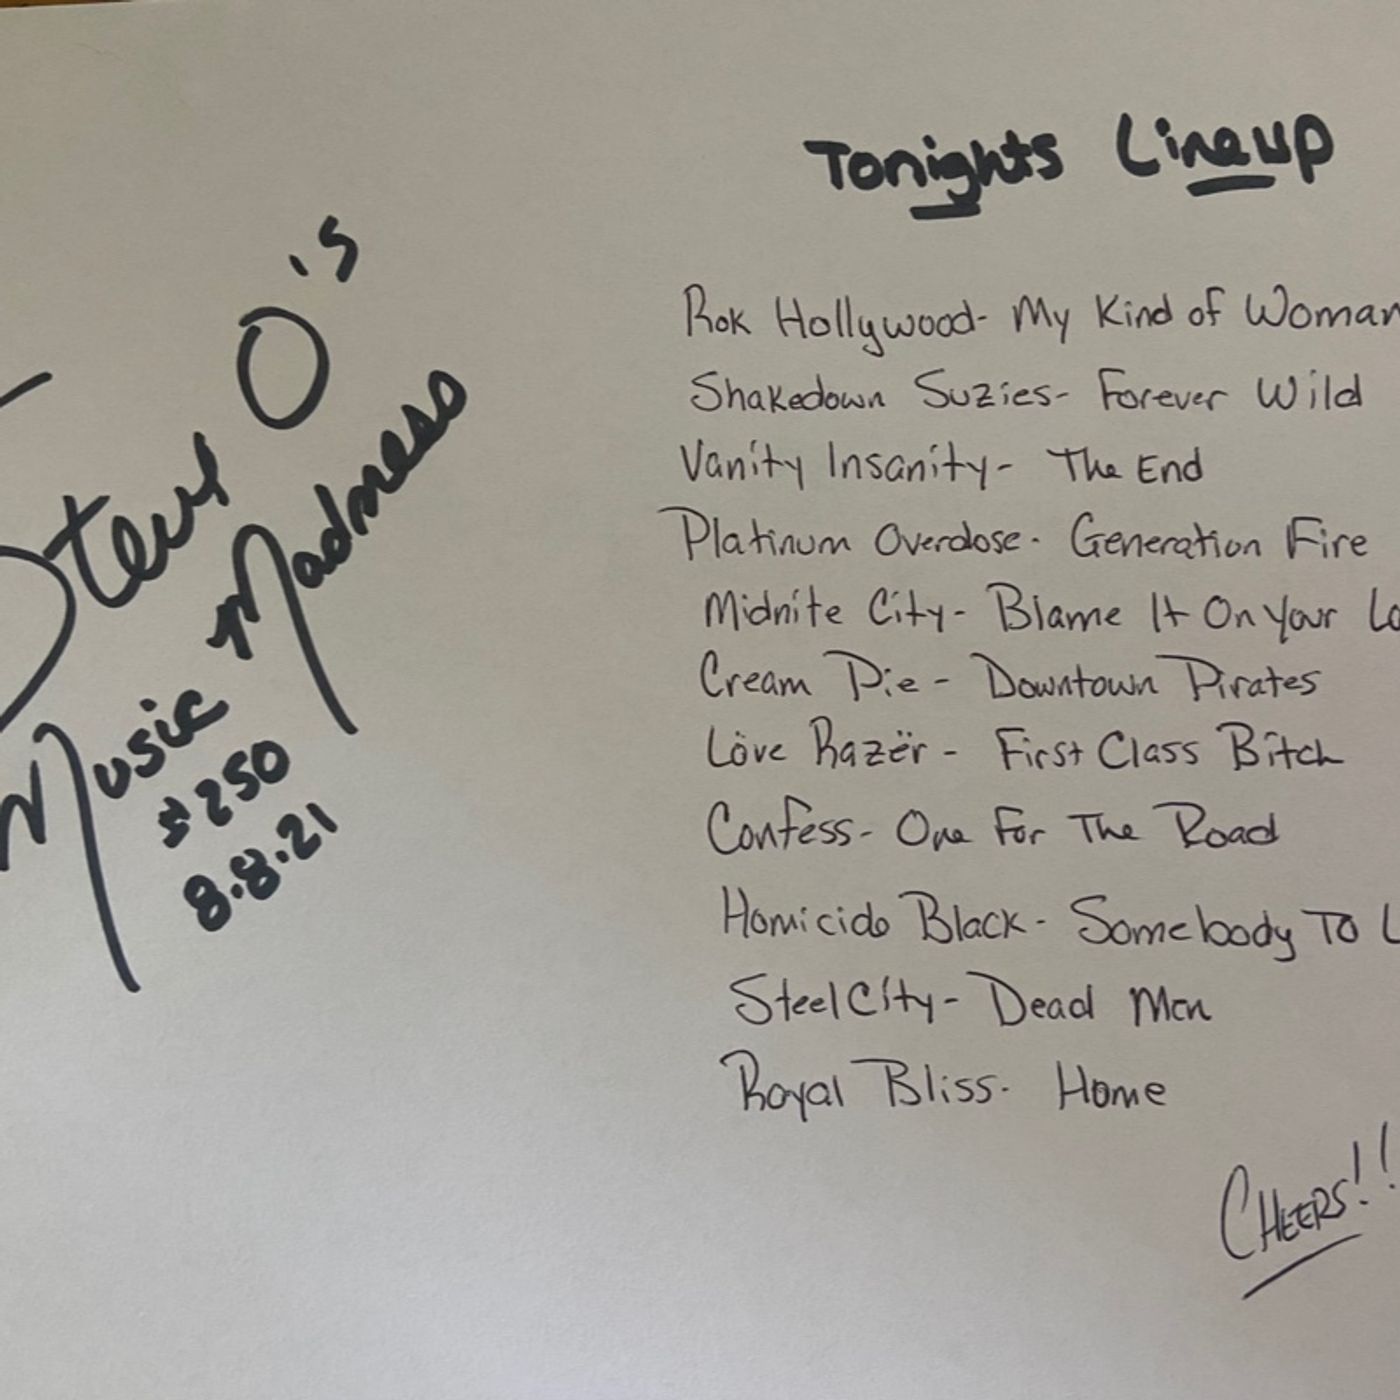 Steve O's
Music Madness
$250
8.8.21
Tonights Lineup
Rok Hollywood- My Kind of Woman
Shakedown Suzies- Forever Wild
Vanity Insanity- The End
Platinum Overdose- Generation Fire
Midnite City- Blame It On Your Lo
Cream Pie- Downtown Pirates
Löve Razër- First Class Bitch
Confess- One For The Road
Homicide Black- Somebody To L
Steel City- Dead Man
Royal Bliss- Home
CHEERS!!